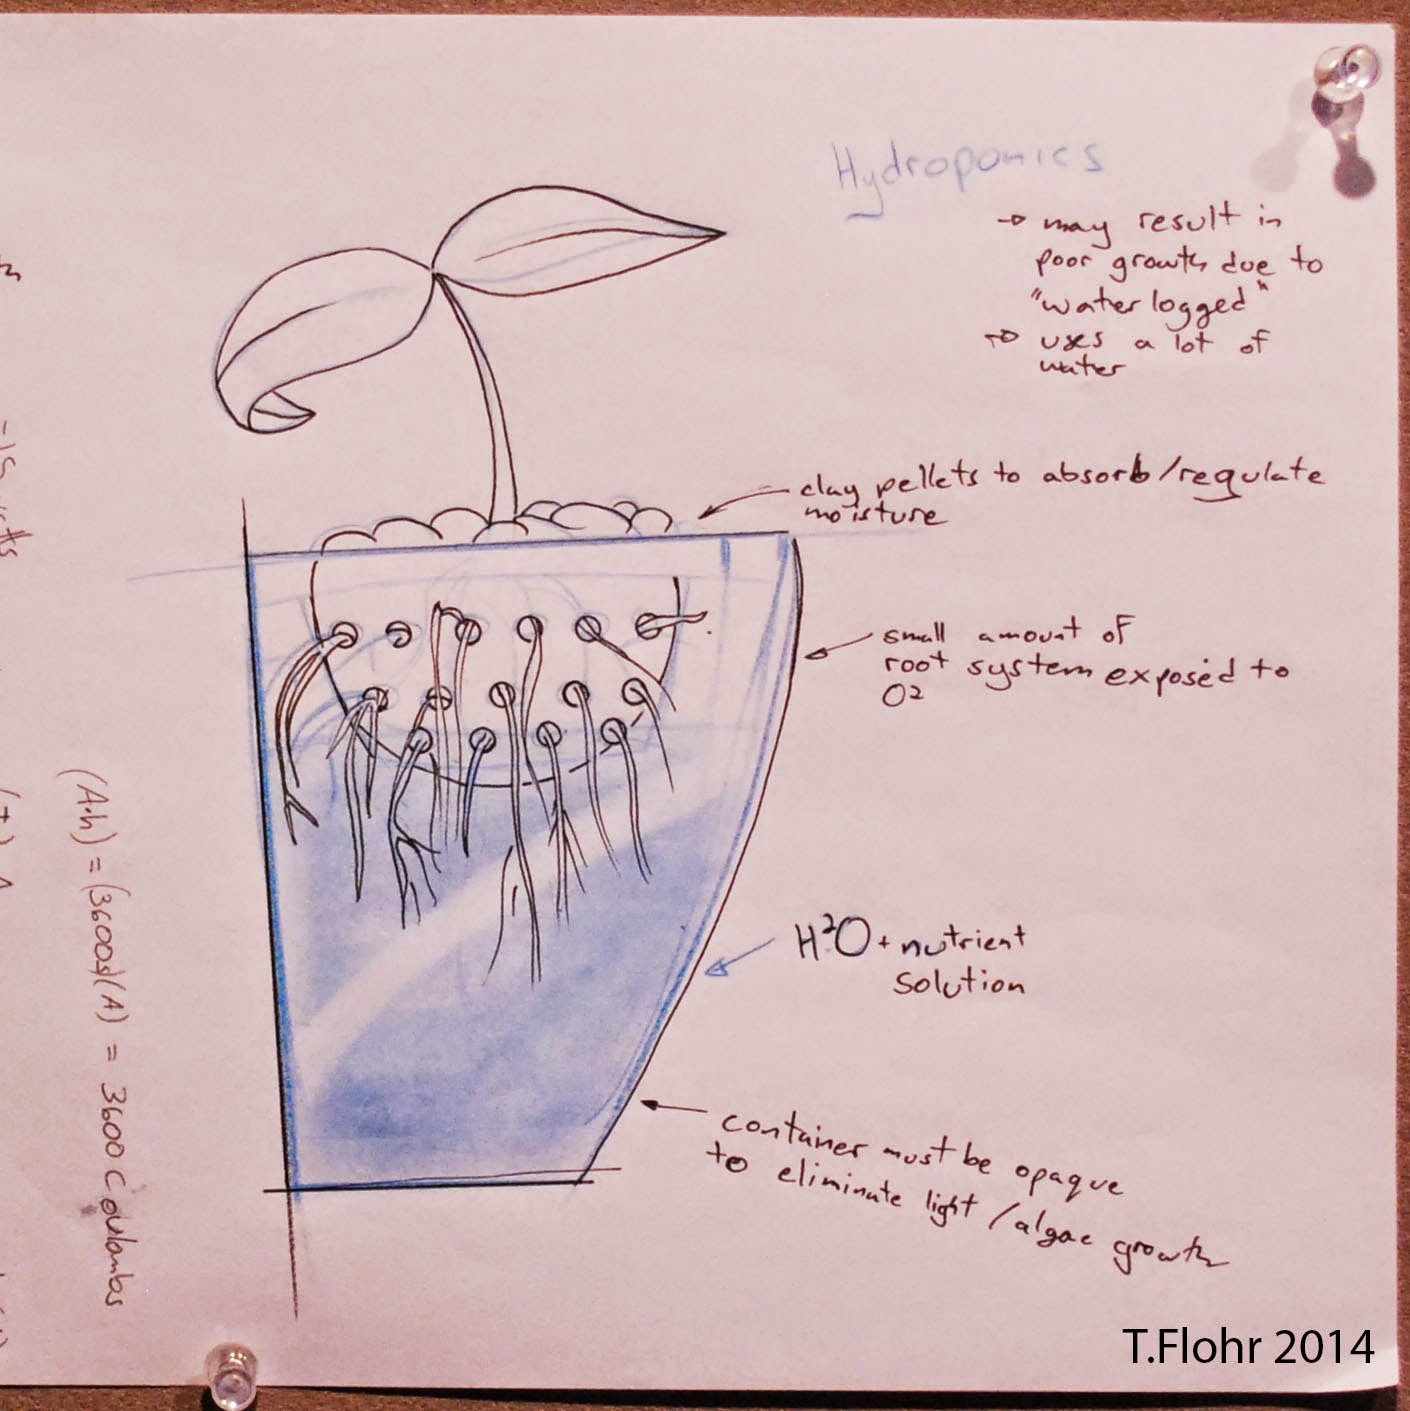 Hydroponics
→ may result in
poor growth due to
"water logged"
→ uses a lot of
water
clay pellets to absorb/regulate
moisture
small amount of
root system exposed to
O²
H²O + nutrient
solution
container must be opaque
to eliminate light / algae growth
(A·h) = (3600s)(A) = 3600 Coulombs
T.Flohr 2014